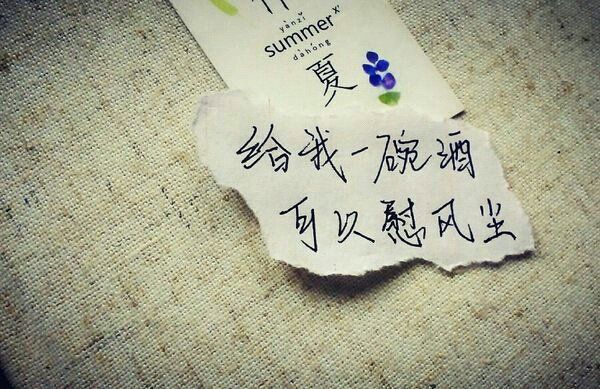 yànzǐ
summer
xì
dàhóng
夏
给我一碗酒
可以慰风尘